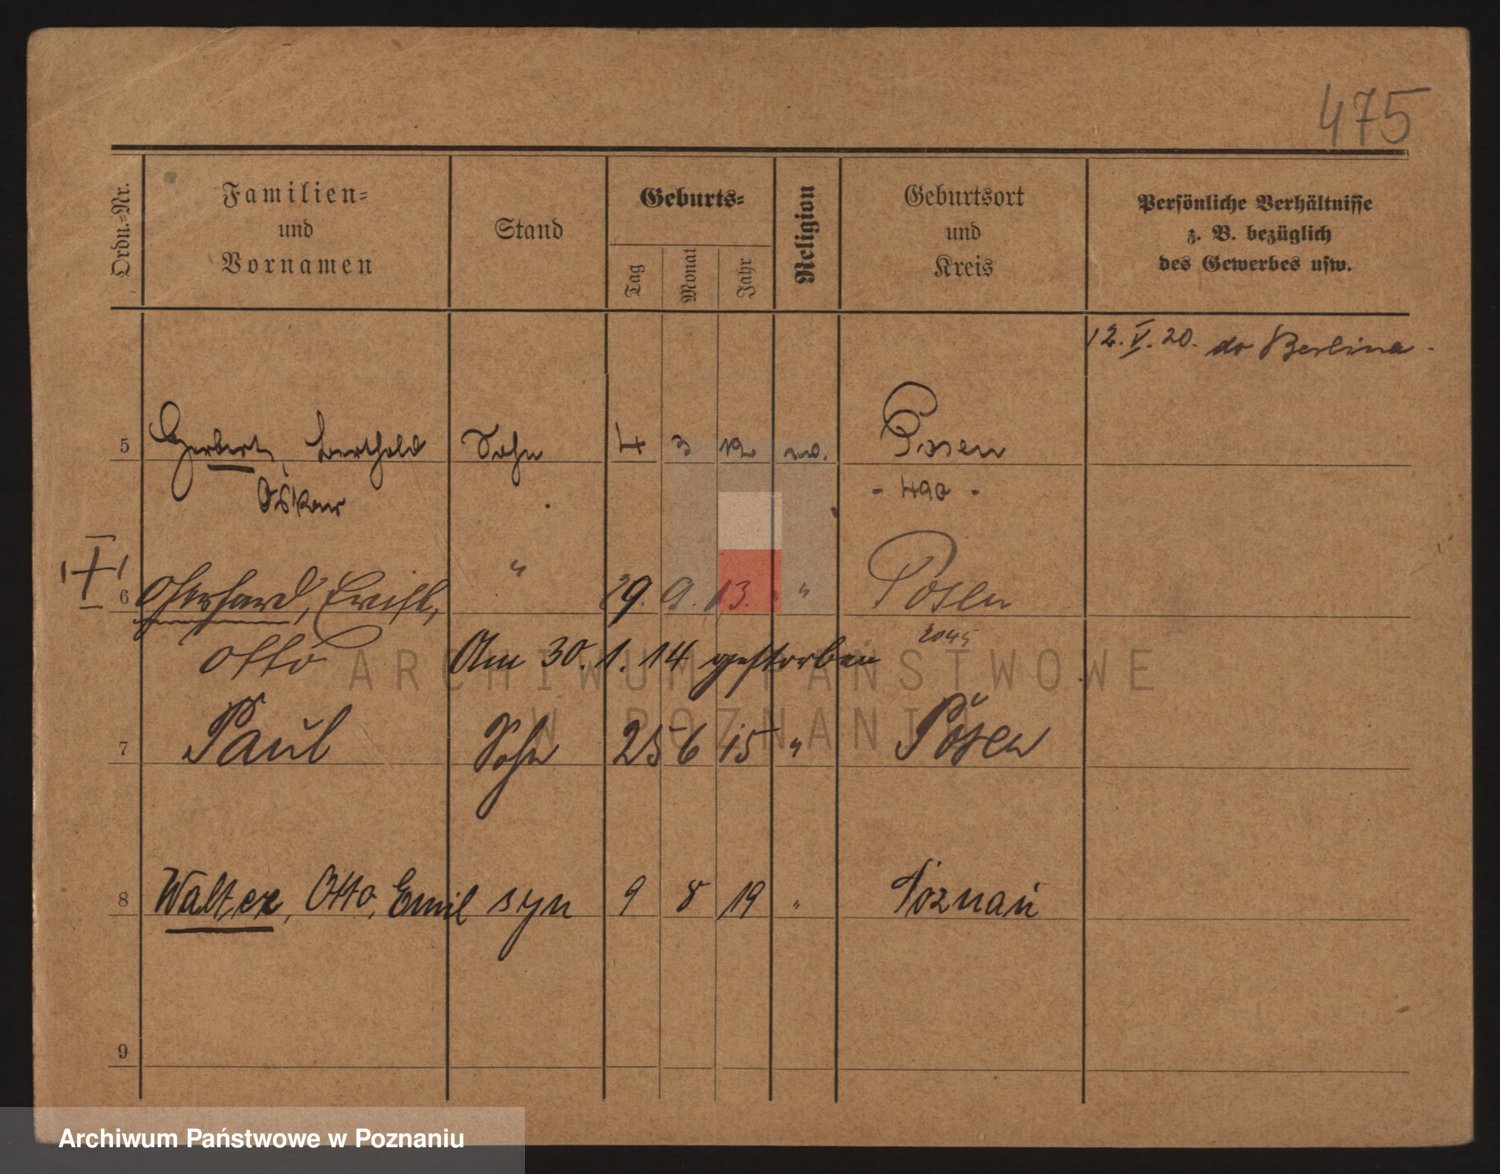 475
Ordn.-Nr.
Familien-
und
Vornamen
Stand
Geburts-
Tag
Monat
Jahr
Religion
Geburtsort
und
Kreis
Persönliche Verhältnisse
z. B. bezüglich
des Gewerbes usw.
12. V. 20. do Berlina.
5 Herbert, Berthold Sohn 4 3 12 Posen
Oskar - 490 -
6 Gerhard, Erich, " 29. 9. 13. " Posen
Otto Am 30. 1. 14 gestorben
7 Paul Sohn 25 6 15 " Posen
8 Walter, Otto, Emil syn 9 8 19 " Poznań
9
ARCHIWUM PAŃSTWOWE
W POZNANIU
Archiwum Państwowe w Poznaniu